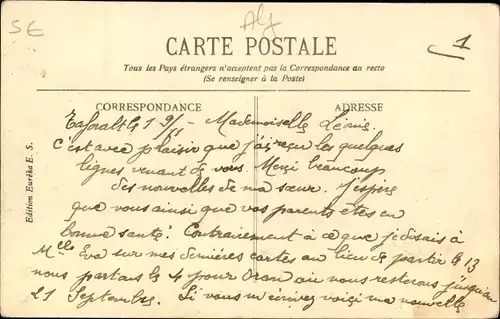 SE
Alg
1
CARTE POSTALE
Tous les Pays étrangers n'acceptent pas la Correspondance au recto
(Se renseigner à la Poste)
CORRESPONDANCE
ADRESSE
Taforalt le 1 9/11 - Mademoiselle Léonie.
C'est avec plaisir que j'ai reçu les quelques
lignes venant de vous. Merci beaucoup
des nouvelles de ma sœur. J'espère
que vous ainsi que vos parents êtes en
bonne santé! Contrairement à ce que je disais à
Melle Eva sur mes dernières cartes au lieu de partir le 13
nous partons le 4 pour Oran où nous resterons jusqu'au
21 Septembre. Si vous m'écrivez voici ma nouvelle
Edition Euréka E. S.